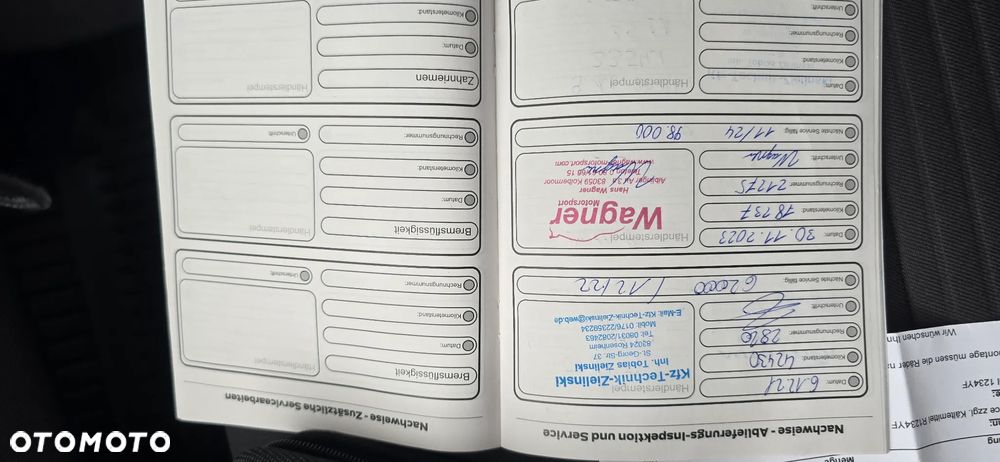 Nachweise - Ablieferungs-Inspektion und Service
Datum:
6.12.21
Kilometerstand:
42430
Rechnungsnummer:
Unterschrift:
Nächste Service fällig:
62000 / 12/22
Händlerstempel
Kfz-Technik-Zielinski
Inh. Tobias Zielinski
St.-Georg-Str. 37
83024 Rosenheim
Tel: 08031/2082463
Mobil: 0176/22359234
E-Mail: Kfz-Technik-Zielinski@web.de
Datum:
30.11.2023
Kilometerstand:
78737
Rechnungsnummer:
21275
Unterschrift:
Wagner
Nächste Service fällig:
11/24 98.000
Händlerstempel
Wagner
Motorsport
Hans Wagner
Aiblinger Au 34 83059 Kolbermoor
www.wagner-motorsport.com
Datum:
Kilometerstand:
Rechnungsnummer:
Unterschrift:
Händlerstempel
Nachweise - Zusätzliche Servicearbeiten
Bremsflüssigkeit
Datum:
Kilometerstand:
Rechnungsnummer:
Händlerstempel
Unterschrift:
Bremsflüssigkeit
Datum:
Kilometerstand:
Rechnungsnummer:
Händlerstempel
Unterschrift:
Zahnriemen
Datum:
Kilometerstand:
Händlerstempel
Menge
ce zzgl. Kältemittel R1234YF
1234YF
ontage müssen die Räder
Wir wünschen Ihn
OTOMOTO